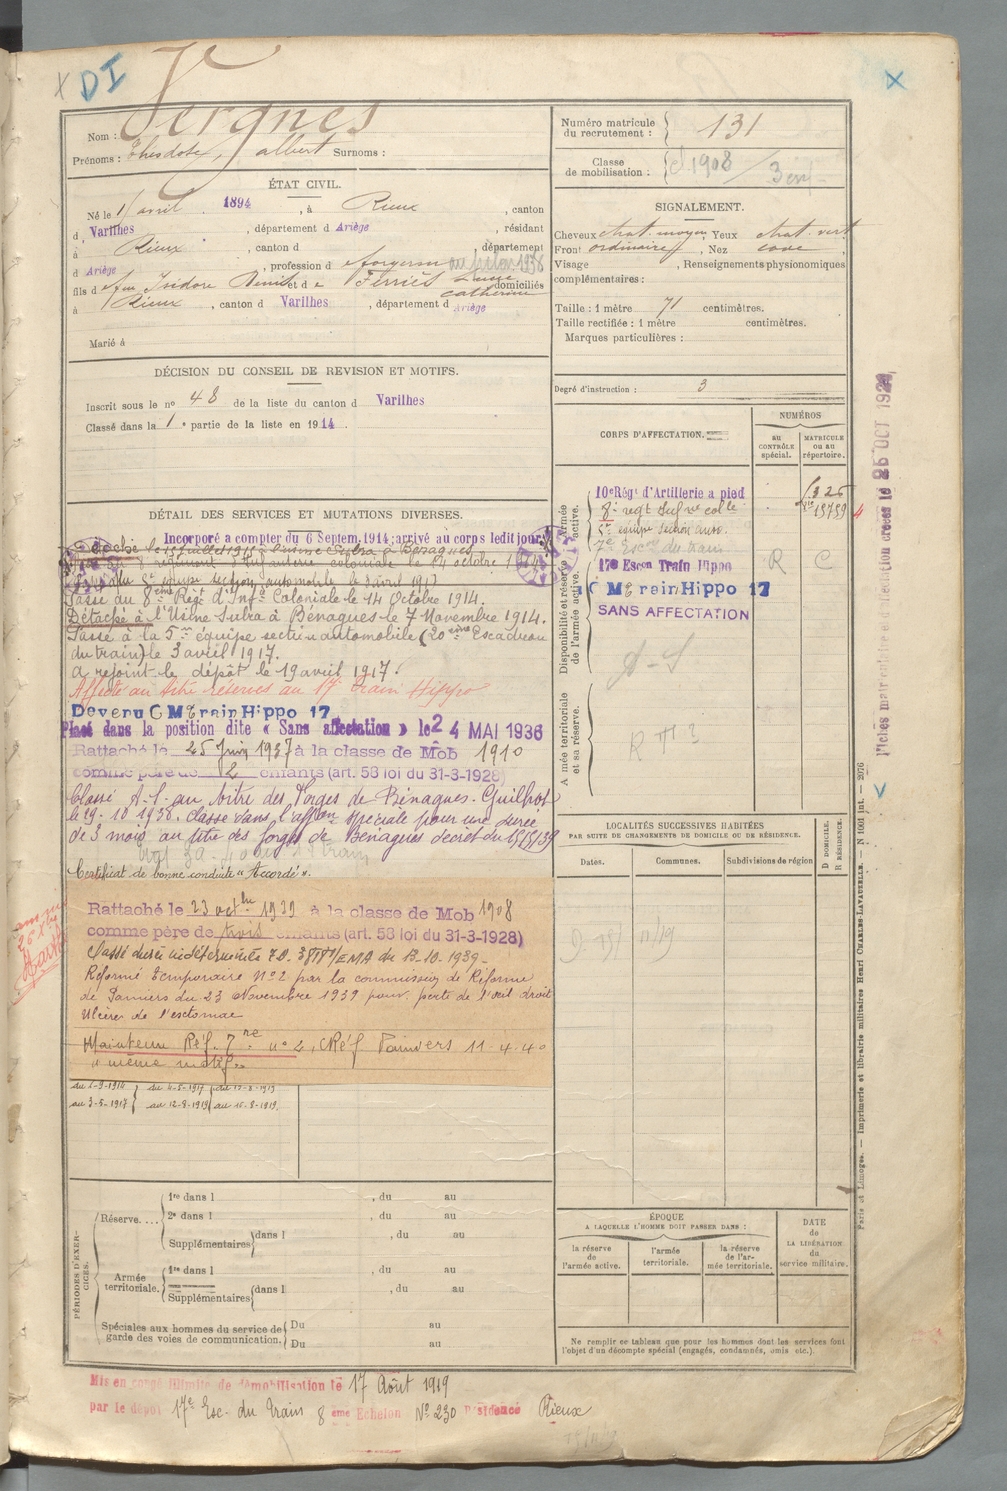 DI
Vergnes
Nom :
Prénoms : Théodore, Albert Surnoms :
ÉTAT CIVIL.
Né le 1 avril 1894, à Rieux, canton
d Varilhes, département d Ariège, résidant
à Rieux, canton d, département
d Ariège, profession d forgeron
fils d feu Isidore Denis et d e Ferriès domiciliés
Catherine
à Rieux, canton d Varilhes, département d Ariège
Marié à
DÉCISION DU CONSEIL DE REVISION ET MOTIFS.
Inscrit sous le nº 48 de la liste du canton d Varilhes
Classé dans la 1e partie de la liste en 1914.
DÉTAIL DES SERVICES ET MUTATIONS DIVERSES.
Incorporé a compter du 6 Septem. 1914; arrivé au corps ledit jour
Passé au 8ème Régt d'Infie Coloniale le 14 Octobre 1914.
Détaché à l'Usine Subra à Bénaques le 7 Novembre 1914.
Passé à la 5me équipe section automobile (20ème Escadron
du train) le 3 avril 1917.
a rejoint le dépôt le 19 avril 1917.
Affecté au titre réserves au 17e Train Hippo
Devenu C M Train Hippo 17
Placé dans la position dite « Sans affectation » le 24 MAI 1936
Rattaché le 25 Juin 1937 à la classe de Mob 1910
comme père de 2 enfants (art. 58 loi du 31-3-1928)
Classé A.S. au titre des Forges de Bénaques-Guilhot
le 29-10 1938. Classé dans l'affon spéciale pour une durée
de 3 mois au titre des forges de Bénaques décret du
Certificat de bonne conduite « Accordé ».
Rattaché le 23 octbre 1939 à la classe de Mob 1908
comme père de trois enfants (art. 58 loi du 31-3-1928)
Classé durée indéterminée /EMA du 13-10-1939-
Réformé temporaire Nº2 par la commission de Réforme
de Pamiers du 23 Novembre 1939 pour perte de l'œil droit
Ulcère de l'estomac
Maintenu Réf. nº 2, CRéf Pamiers 11-4-40
« même motif »
du 2-9-1914 du 4-5-1917 du 13-8-1919
au 3-5-1917 au 12-8-1919 au 16-8-1919.
PÉRIODES D'EXERCICES.
Réserve....
1re dans l , du au
2e dans l , du au
Supplémentaires dans l , du au
Armée territoriale.
1re dans l , du au
Supplémentaires dans l , du au
Spéciales aux hommes du service de garde des voies de communication.
Du au
Du au
Mis en congé illimité de démobilisation le 17 Août 1919
par le dépôt 17e Esc. du Train 8 ème Echelon Nº 230 Résidence Rieux
Numéro matricule du recrutement : 131
Classe de mobilisation : 1908
SIGNALEMENT.
Cheveux chat. moyen, Yeux chat. vert
Front ordinaire, Nez cave
Visage , Renseignements physionomiques
complémentaires :
Taille : 1 mètre 71 centimètres.
Taille rectifiée : 1 mètre centimètres.
Marques particulières :
Degré d'instruction : 3
CORPS D'AFFECTATION.
NUMÉROS
au CONTRÔLE spécial.
MATRICULE ou au répertoire.
Disponibilité et réserve de l'armée active.
Armée active.
10e Régt d'Artillerie a pied
8e regt Infrie colle 15759
5e equipe section auto.
7e Escon du train
17e Escon Train Hippo R C
C M Train Hippo 17
SANS AFFECTATION
A-S
Armée territoriale et sa réserve.
LOCALITÉS SUCCESSIVES HABITÉES
PAR SUITE DE CHANGEMENTS DE DOMICILE OU DE RÉSIDENCE.
Dates.
Communes.
Subdivisions de région
D DOMICILE.
R RÉSIDENCE.
ÉPOQUE
A LAQUELLE L'HOMME DOIT PASSER DANS :
la réserve de l'armée active.
l'armée territoriale.
la réserve de l'armée territoriale.
DATE de LA LIBÉRATION du service militaire.
Ne remplir ce tableau que pour les hommes dont les services font
l'objet d'un décompte spécial (engagés, condamnés, omis etc.).
Fiches matriculaire et d'affectation créées le 26 OCT 192
Paris et Limoges. — Imprimerie et librairie militaires Henri CHARLES-LAVAUZELLE. — N 1661 int. — 2076